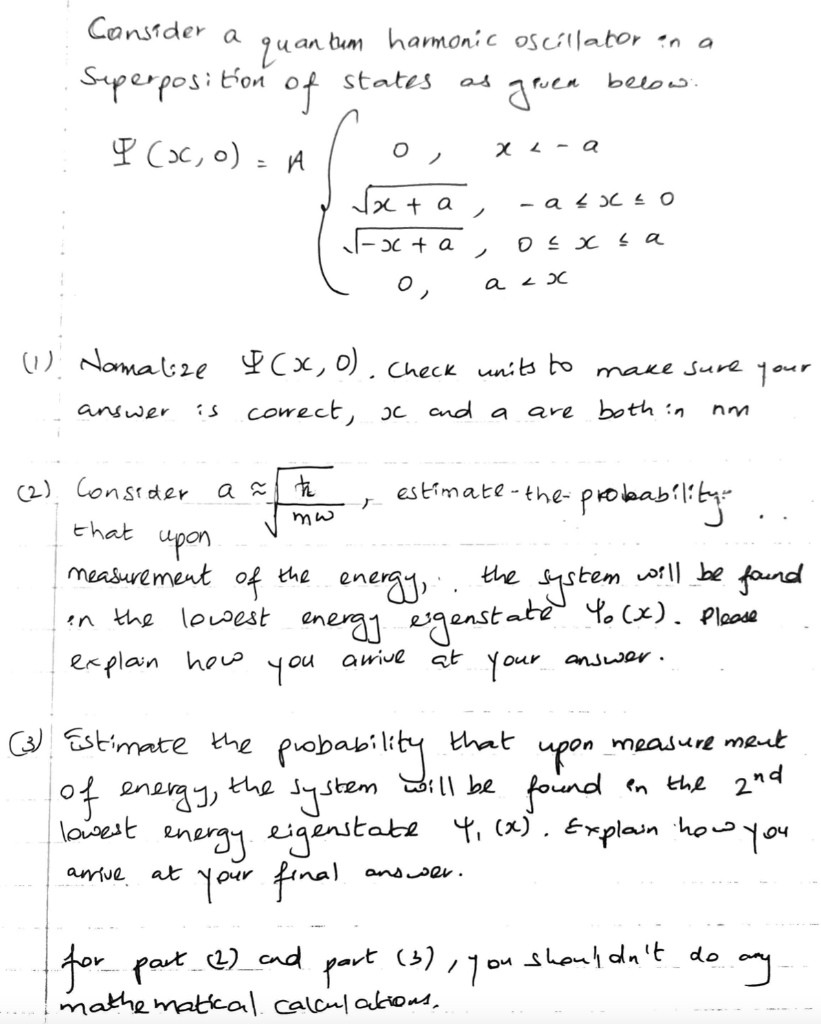 Consider a quantum harmonic oscillator in a
Superposition of states as given below.
Ψ(x,0) = A { 0, x < -a
√x + a, -a ≤ x ≤ 0
√-x + a, 0 ≤ x ≤ a
0, a < x
(1) Normalize Ψ(x,0). Check units to make sure your
answer is correct, x and a are both in nm
(2) Consider a ≈ √ħ/mω, estimate-the-probability
that upon
measurement of the energy, the system will be found
in the lowest energy eigenstate Ψ₀(x). Please
explain how you arrive at your answer.
(3) Estimate the probability that upon measurement
of energy, the system will be found in the 2nd
lowest energy eigenstate Ψ₁(x). Explain how you
arrive at your final answer.
for part (2) and part (3), you shouldn't do any
mathematical calculations.